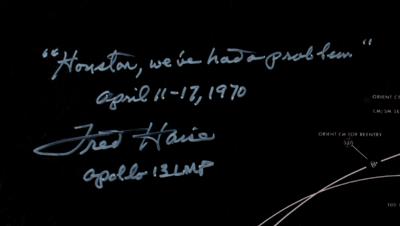 "Houston, we've had a problem"
April 11-17, 1970
Fred Haise
Apollo 13 LMP
ORIENT CM FOR REENTRY